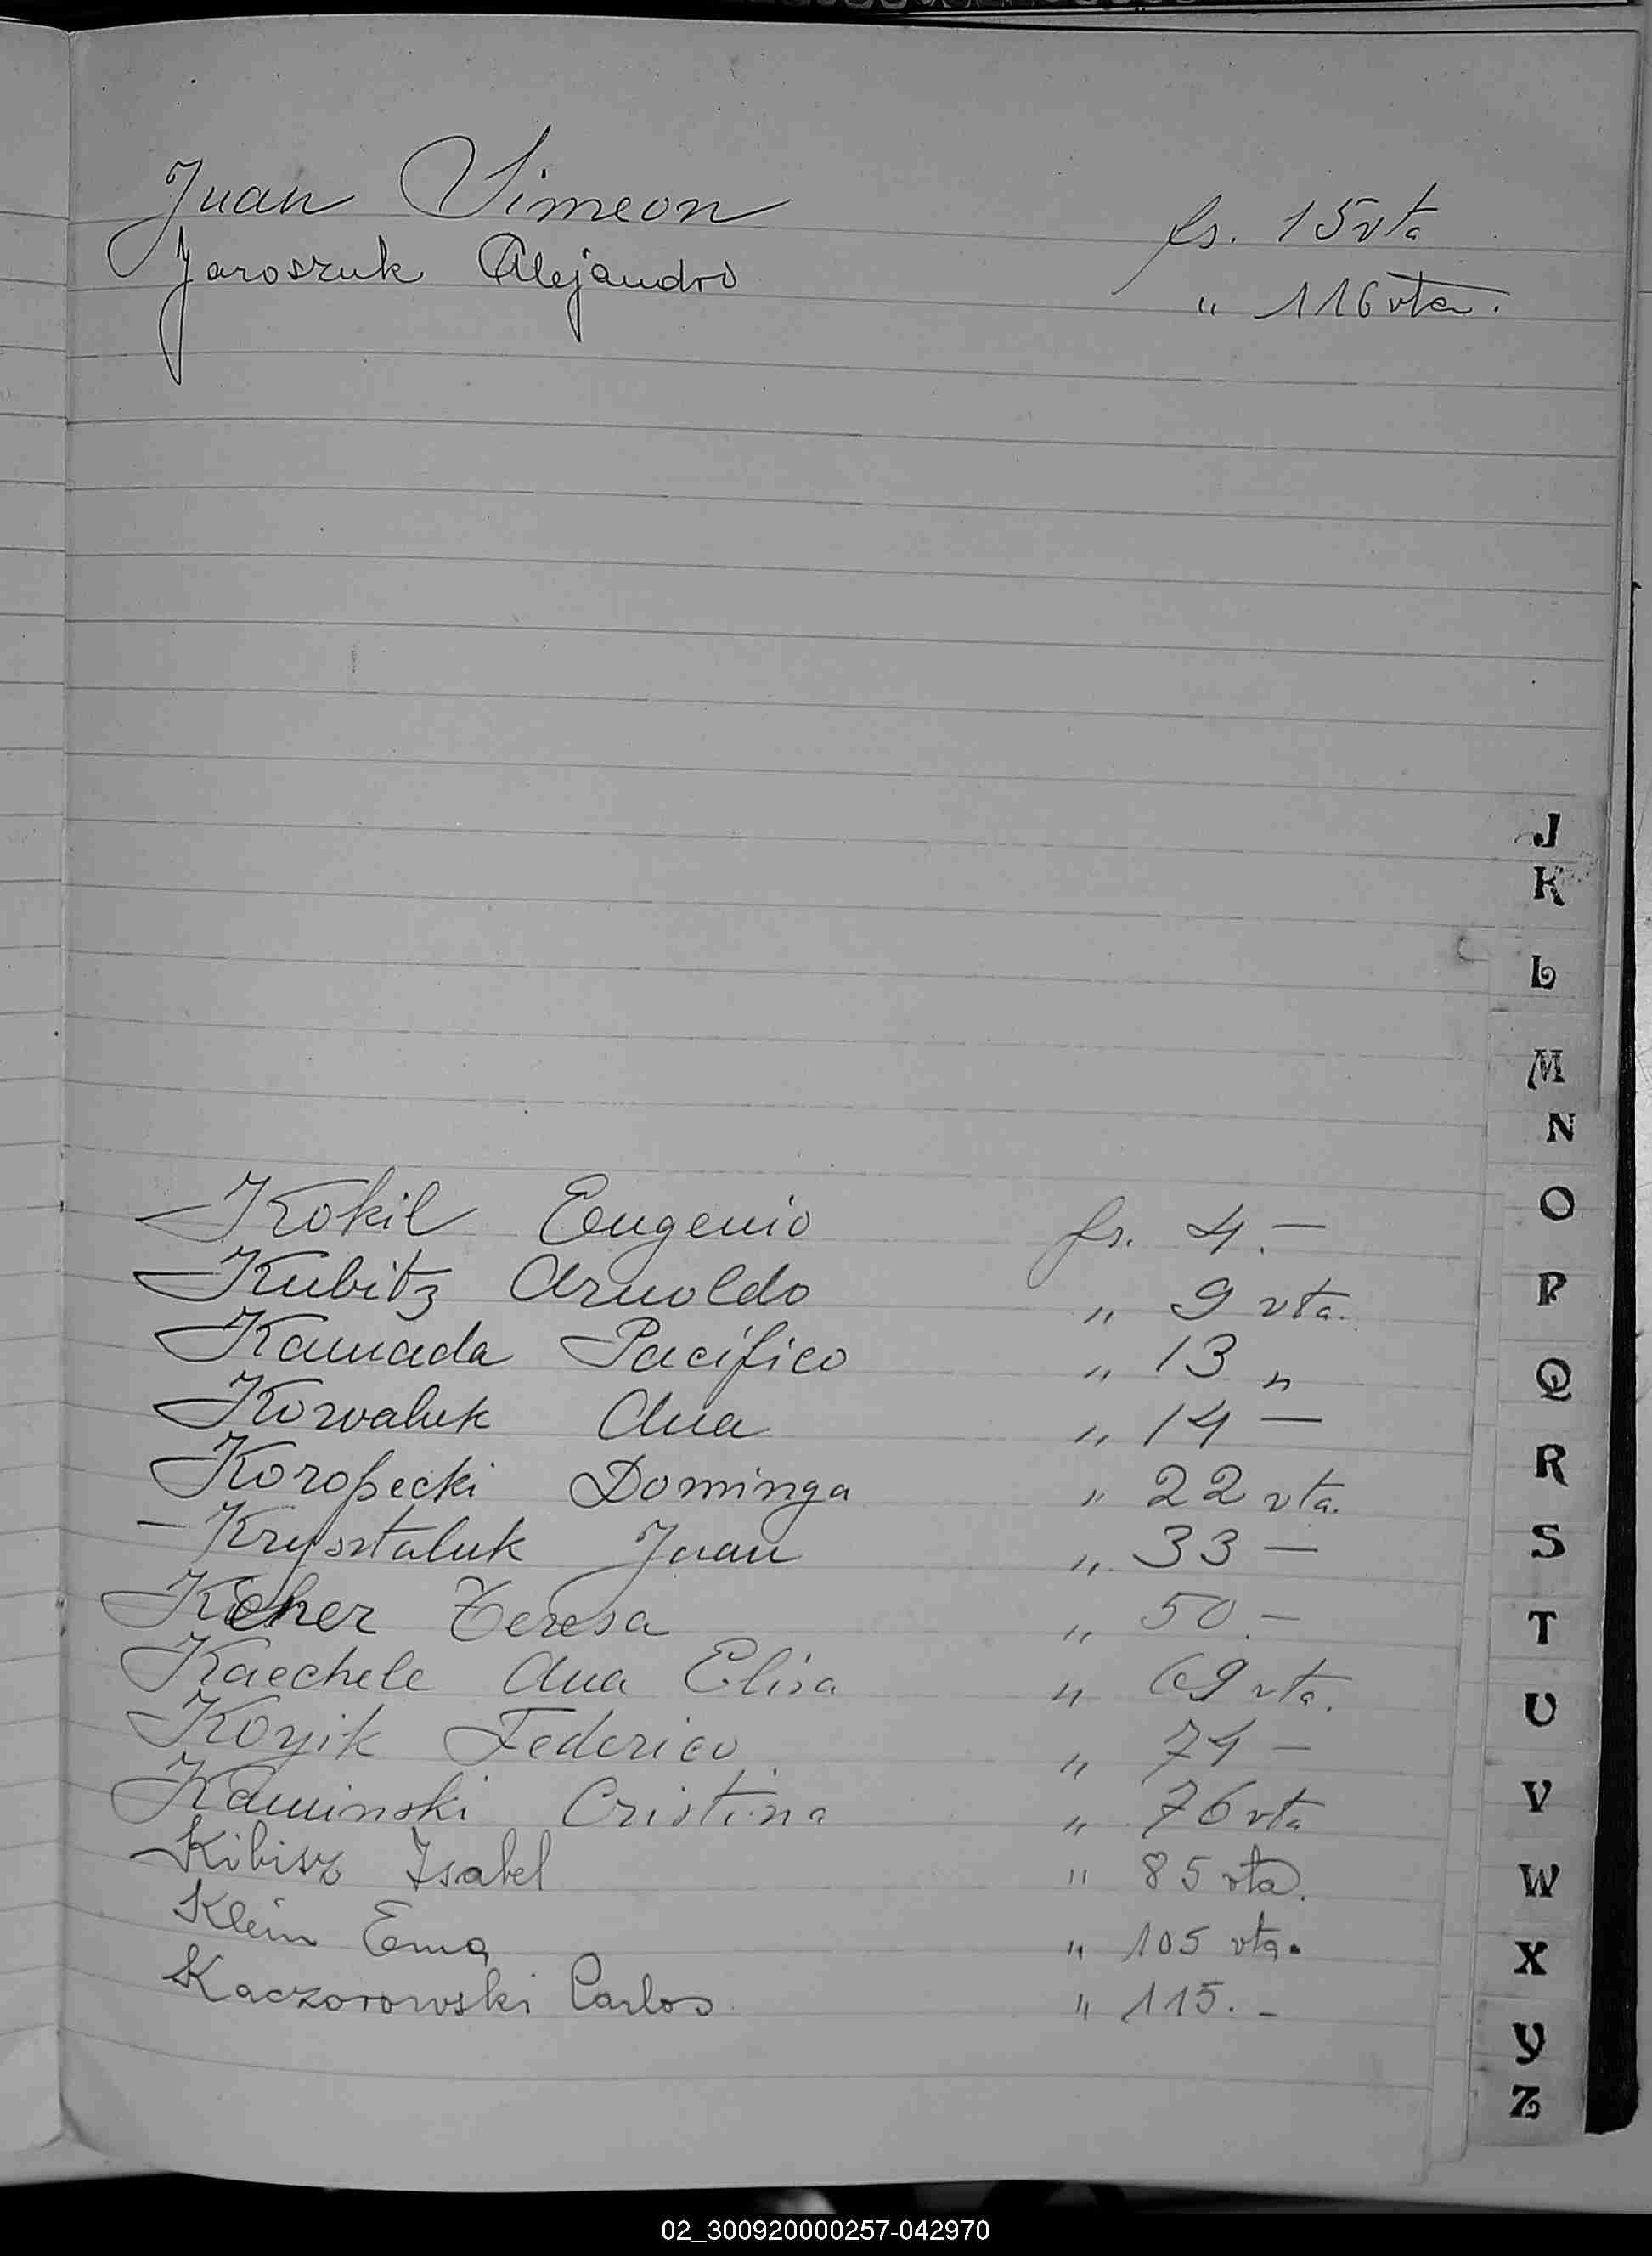 Juan Simeon fs. 15 vta
Jaroszuk Alejandro " 116 vta.
Kokil Eugenio fs. 4.—
Kubitz Arnoldo " 9 vta.
Kamada Pacífico " 13 "
Korvaluk Ana " 14 —
Koropecki Dominga " 22 vta.
— Krysztaluk Juan " 33 —
Kicher Teresa " 50.—
Kaechele Ana Elisa " 69 vta.
Kozik Federico " 71 —
Kaminski Cristina " 76 vta
Kibisz Isabel " 85 vta.
Klein Ema " 105 vta.
Kaczorowski Carlos " 115.-
J
K
L
M
N
O
P
Q
R
S
T
U
V
W
X
Y
Z
02_300920000257-042970